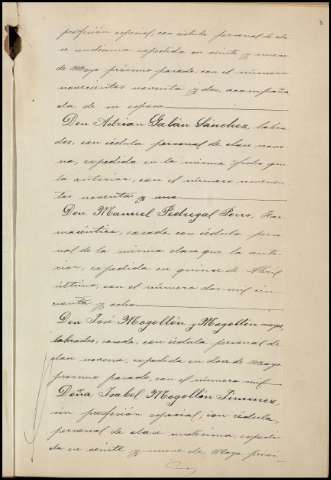 profesión especial, con cédula personal de cla
se undécima expedida en veinte y nueve
de Mayo próximo pasado, con el número
novecientos noventa y dos, acompaña
da de su esposo
Don Adrian Galán Sánchez, labra
dor, con cédula personal de clase nove
na, expedida en la misma fecha que
la anterior, con el número novecien
tos noventa y uno
Don Manuel Pedregal Pero, Far
macéutico, casado con cédula perso
nal de la misma clase que la ante
rior, expedida en quince de Abril
último, con el número dos mil cin
cuenta y ocho
Don José Mogollón y Mogollón mayor,
labrador, casado, con cédula personal de
clase novena, expedida en doce de Mayo
próximo pasado, con el número mil
Doña Isabel Mogollón Jimenez,
sin profesión especial, con cédula
personal de clase undécima, expedi
da en veinte y nueve de Mayo próxi-